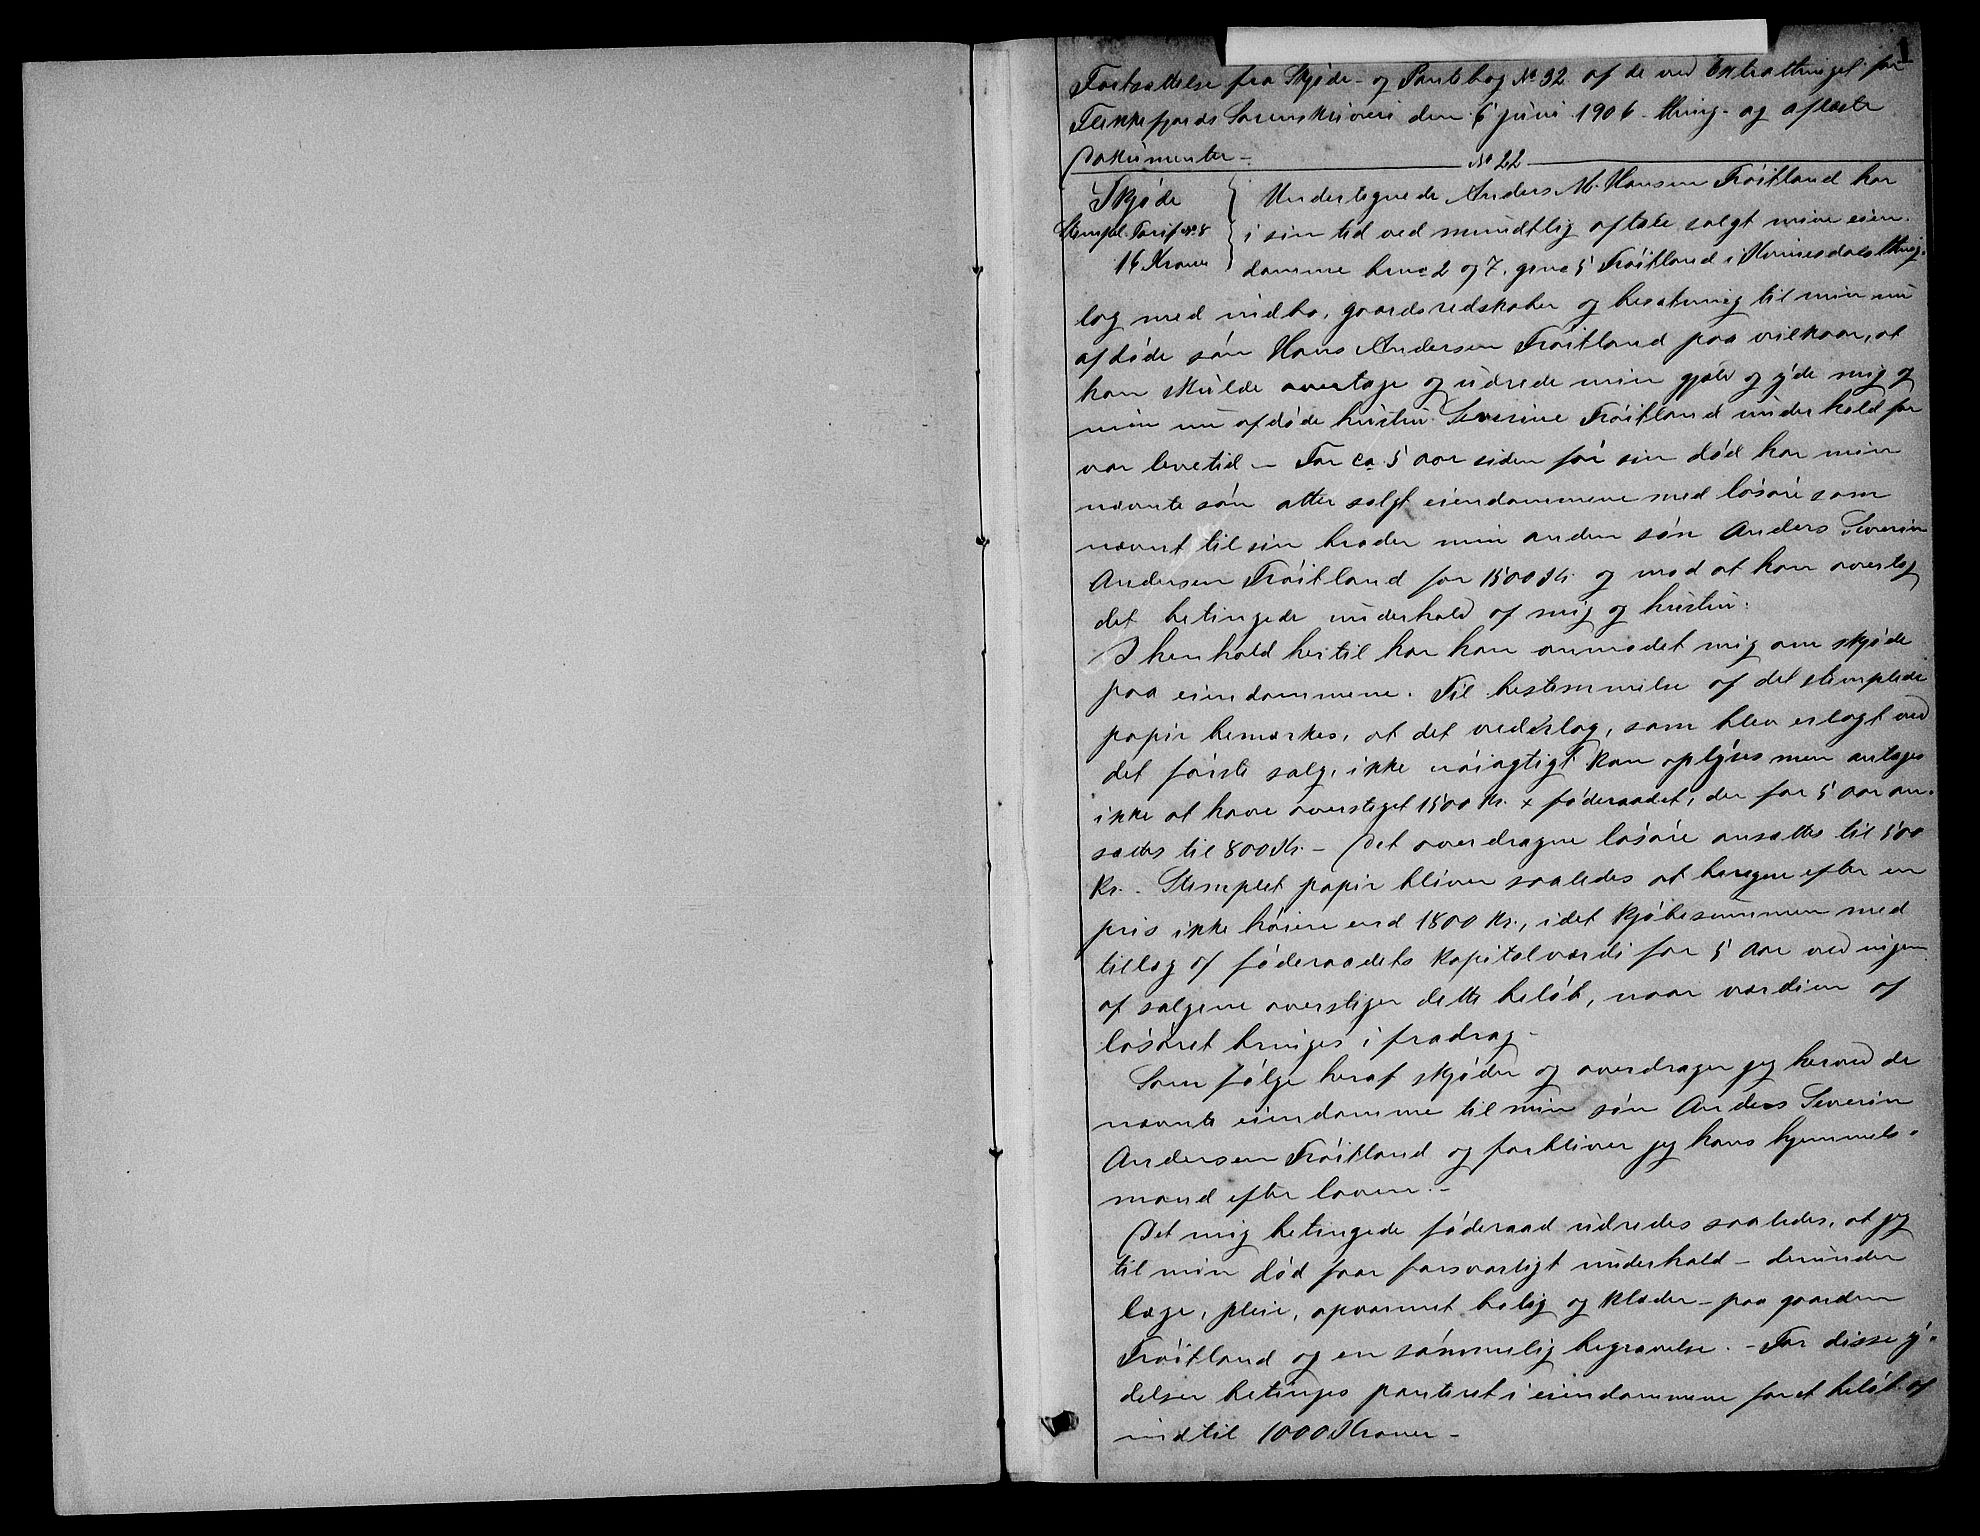 1
Fortsættelse fra Skjøde- og Pantebog No 32 af de ved Extrathinget for
Flekkefjords Sorenskriveri den 6 juni 1906 thing- og aflæste
Dokumenter -
No 22
Skjøde
Stempl. Tarif No 8
16 Kroner
Undertegnede Anders M. Hansen Trøitland har
i sin tid ved mundtlig aftale solgt mine eien-
domme bno 2 og 7, gno 5 Trøitland i Kvinesdals thing-
lag med indbo, gaardsredskaber og besætning til min nu
afdøde søn Hans Andersen Trøitland paa vilkaar, at
han skulde overtage og udrede min gjæld og yde mig og
min nu afdøde hustru Severine Trøitland underhold for
vor levetid - For ca 5 aar siden før sin død har min
nævnte søn atter solgt eiendommene med løsøre som
nævnt til sin broder min anden søn Anders Severin
Andersen Trøitland for 1500 Kr. og mod at han overtog
det betingede underhold af mig og hustru.
I henhold hertil har han anmodet mig om skjøde
paa eiendommene. Til bestemmelse af det stemplede
papir bemærkes, at det vederlag, som blev erlagt ved
det første salg, ikke nøiagtigt kan oplyses men antages
ikke at have oversteget 1500 Kr. + føderaadet, der for 5 aar an-
sættes til 800 Kr. - Det overdragne løsøre ansættes til 500
Kr. - Stemplet papir bliver saaledes at beregne efter en
pris ikke høiere end 1800 Kr., idet kjøbesummen med
tillæg af føderaadets kapitalværdi for 5 aar ved ingen
af salgene overstiger dette beløb, naar værdien af
løsøret bringes i fradrag -
Som følge heraf skjøder og overdrager jeg herved de
nævnte eiendomme til min søn Anders Severin
Andersen Trøitland og forbliver jeg hans hjemmels-
mand efter loven. -
Det mig betingede føderaad udredes saaledes, at jeg
til min død faar forsvarligt underhold - derunder
læge, pleie, opvarmet bolig og klæder - paa gaarden
Trøitland og en sømmelig begravelse. - For disse y-
delser betinges panteret i eiendommene for et beløb af
indtil 1000 Kroner -